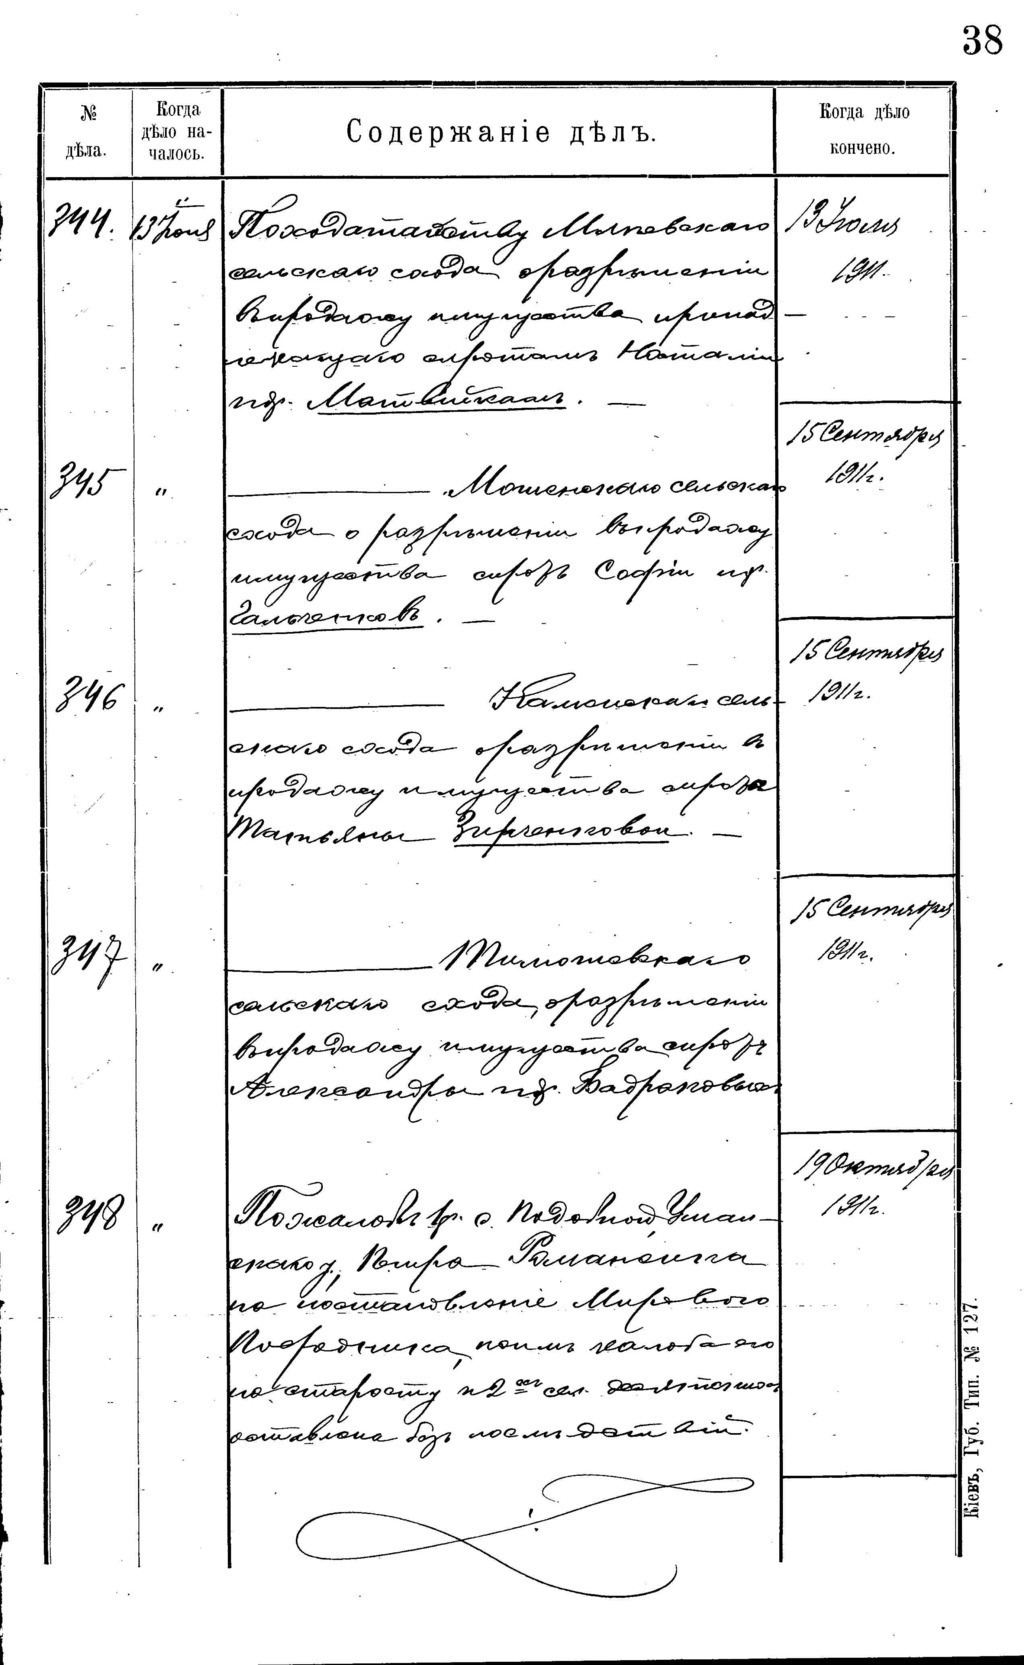 38
№ дѣла.
Когда дѣло на-чалось.
Содержаніе дѣлъ.
Когда дѣло кончено.
344. 13 Іюня По ходатайству Млѣевскаго 13 Іюля
сельскаго схода о разрѣшеніи 1911.
въ продажу имущества принад
лежащаго сиротамъ Наталіи
и др. Матвійкамъ. —
15 Сентября
345 „ Мошенскаго сельскаго 1911г.
схода о разрѣшеніи въ продажу
имущества сиротъ Софіи и др.
Гальченковъ. —
15 Сентября
346 „ сель- 1911г.
скаго схода о разрѣшеніи въ
продажу имущества сироты
Татьяны Зирченковой. —
15 Сентября
347 „ Тимошевскаго 1911г.
сельскаго схода, о разрѣшеніи
въ продажу имущества сиротъ
Александры и др. Бадраковыхъ
19 Октября
348 „ По жалобѣ кр. с. Подобной, Уман- 1911г.
скаго у., Кипра Романюка
на постановленіе Мирового
Посредника, коимъ жалоба его
на старосту и 2хъ сел. десятскихъ
оставлена безъ послѣдствій.
Кіевъ, Губ. Тип. № 127.